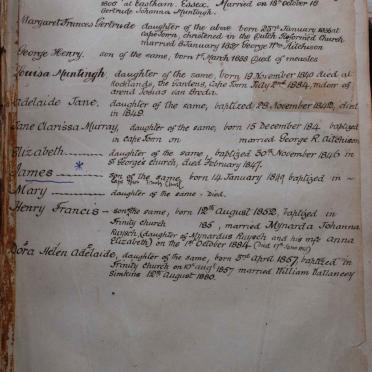 1806" at Eastham. Essex. Married on 18th October 18
Gertrude Johanna Muntingh.
Margaret Frances Gertrude daughter of the above born 23rd January 1836 at
Cape Town, christened in the Dutch Reformed Church
married 6 January 1827 George Wm Aitchison
George Henry. son of the same, born 1st March 1838 Died of measles
Louisa Muntingh, daughter of the same, born 19 November 1840 died at
the Gardens, Cape Town July 2nd 1884, mdorr of
Arend Josias van Breda.
Adelaide Jane, daughter of the same, baptized 28 November 1842, died
in 1849.
Jane Clarissa Murray, daughter of the same, born 15 December 184. baptized
in Cape Town on married George R. Aitchison
Elizabeth daughter of the same, baptized 30th November 1846 in
S. George's church, died February 1847.
James * son of the same, born 14 January 1849 baptized in -
Cape Town Trinity Church
Mary daughter of the same - Died.
Henry Francis - son of the same, born 12th August 1852, baptized in
Trinity church 185 , married Mynarda Johanna
Ruysch (daughter of Mynardus Ruysch and his wife Anna
Elizabeth) on the 1st October 1884
Dora Helen Adelaide, daughter of the same, born 3rd April 1857, baptized in
Trinity church on 10th Augt 1857 married William Ballancey
Simkins 12th August 1880.